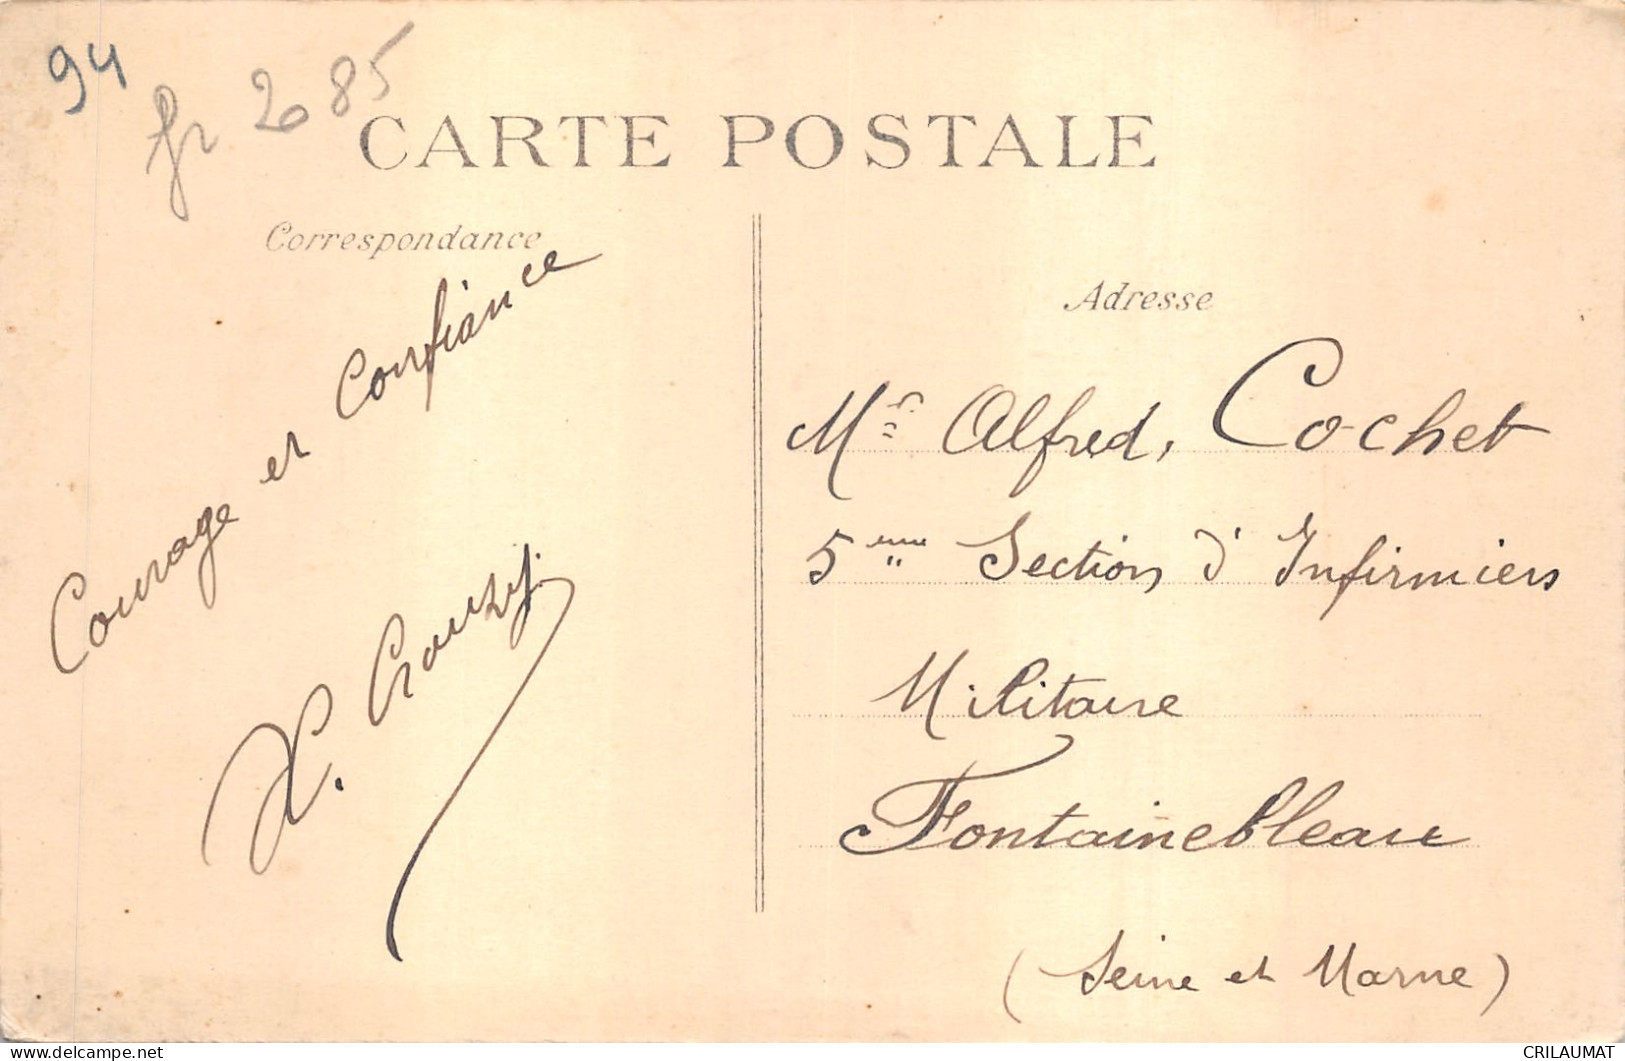 94
fr 2085
CARTE POSTALE
Correspondance
Courage et Confiance
Adresse
Mr Alfred, Cochet
5eme Section d'Infirmiers
Militaire
Fontainebleau
(Seine et Marne)
CRILAUMAT